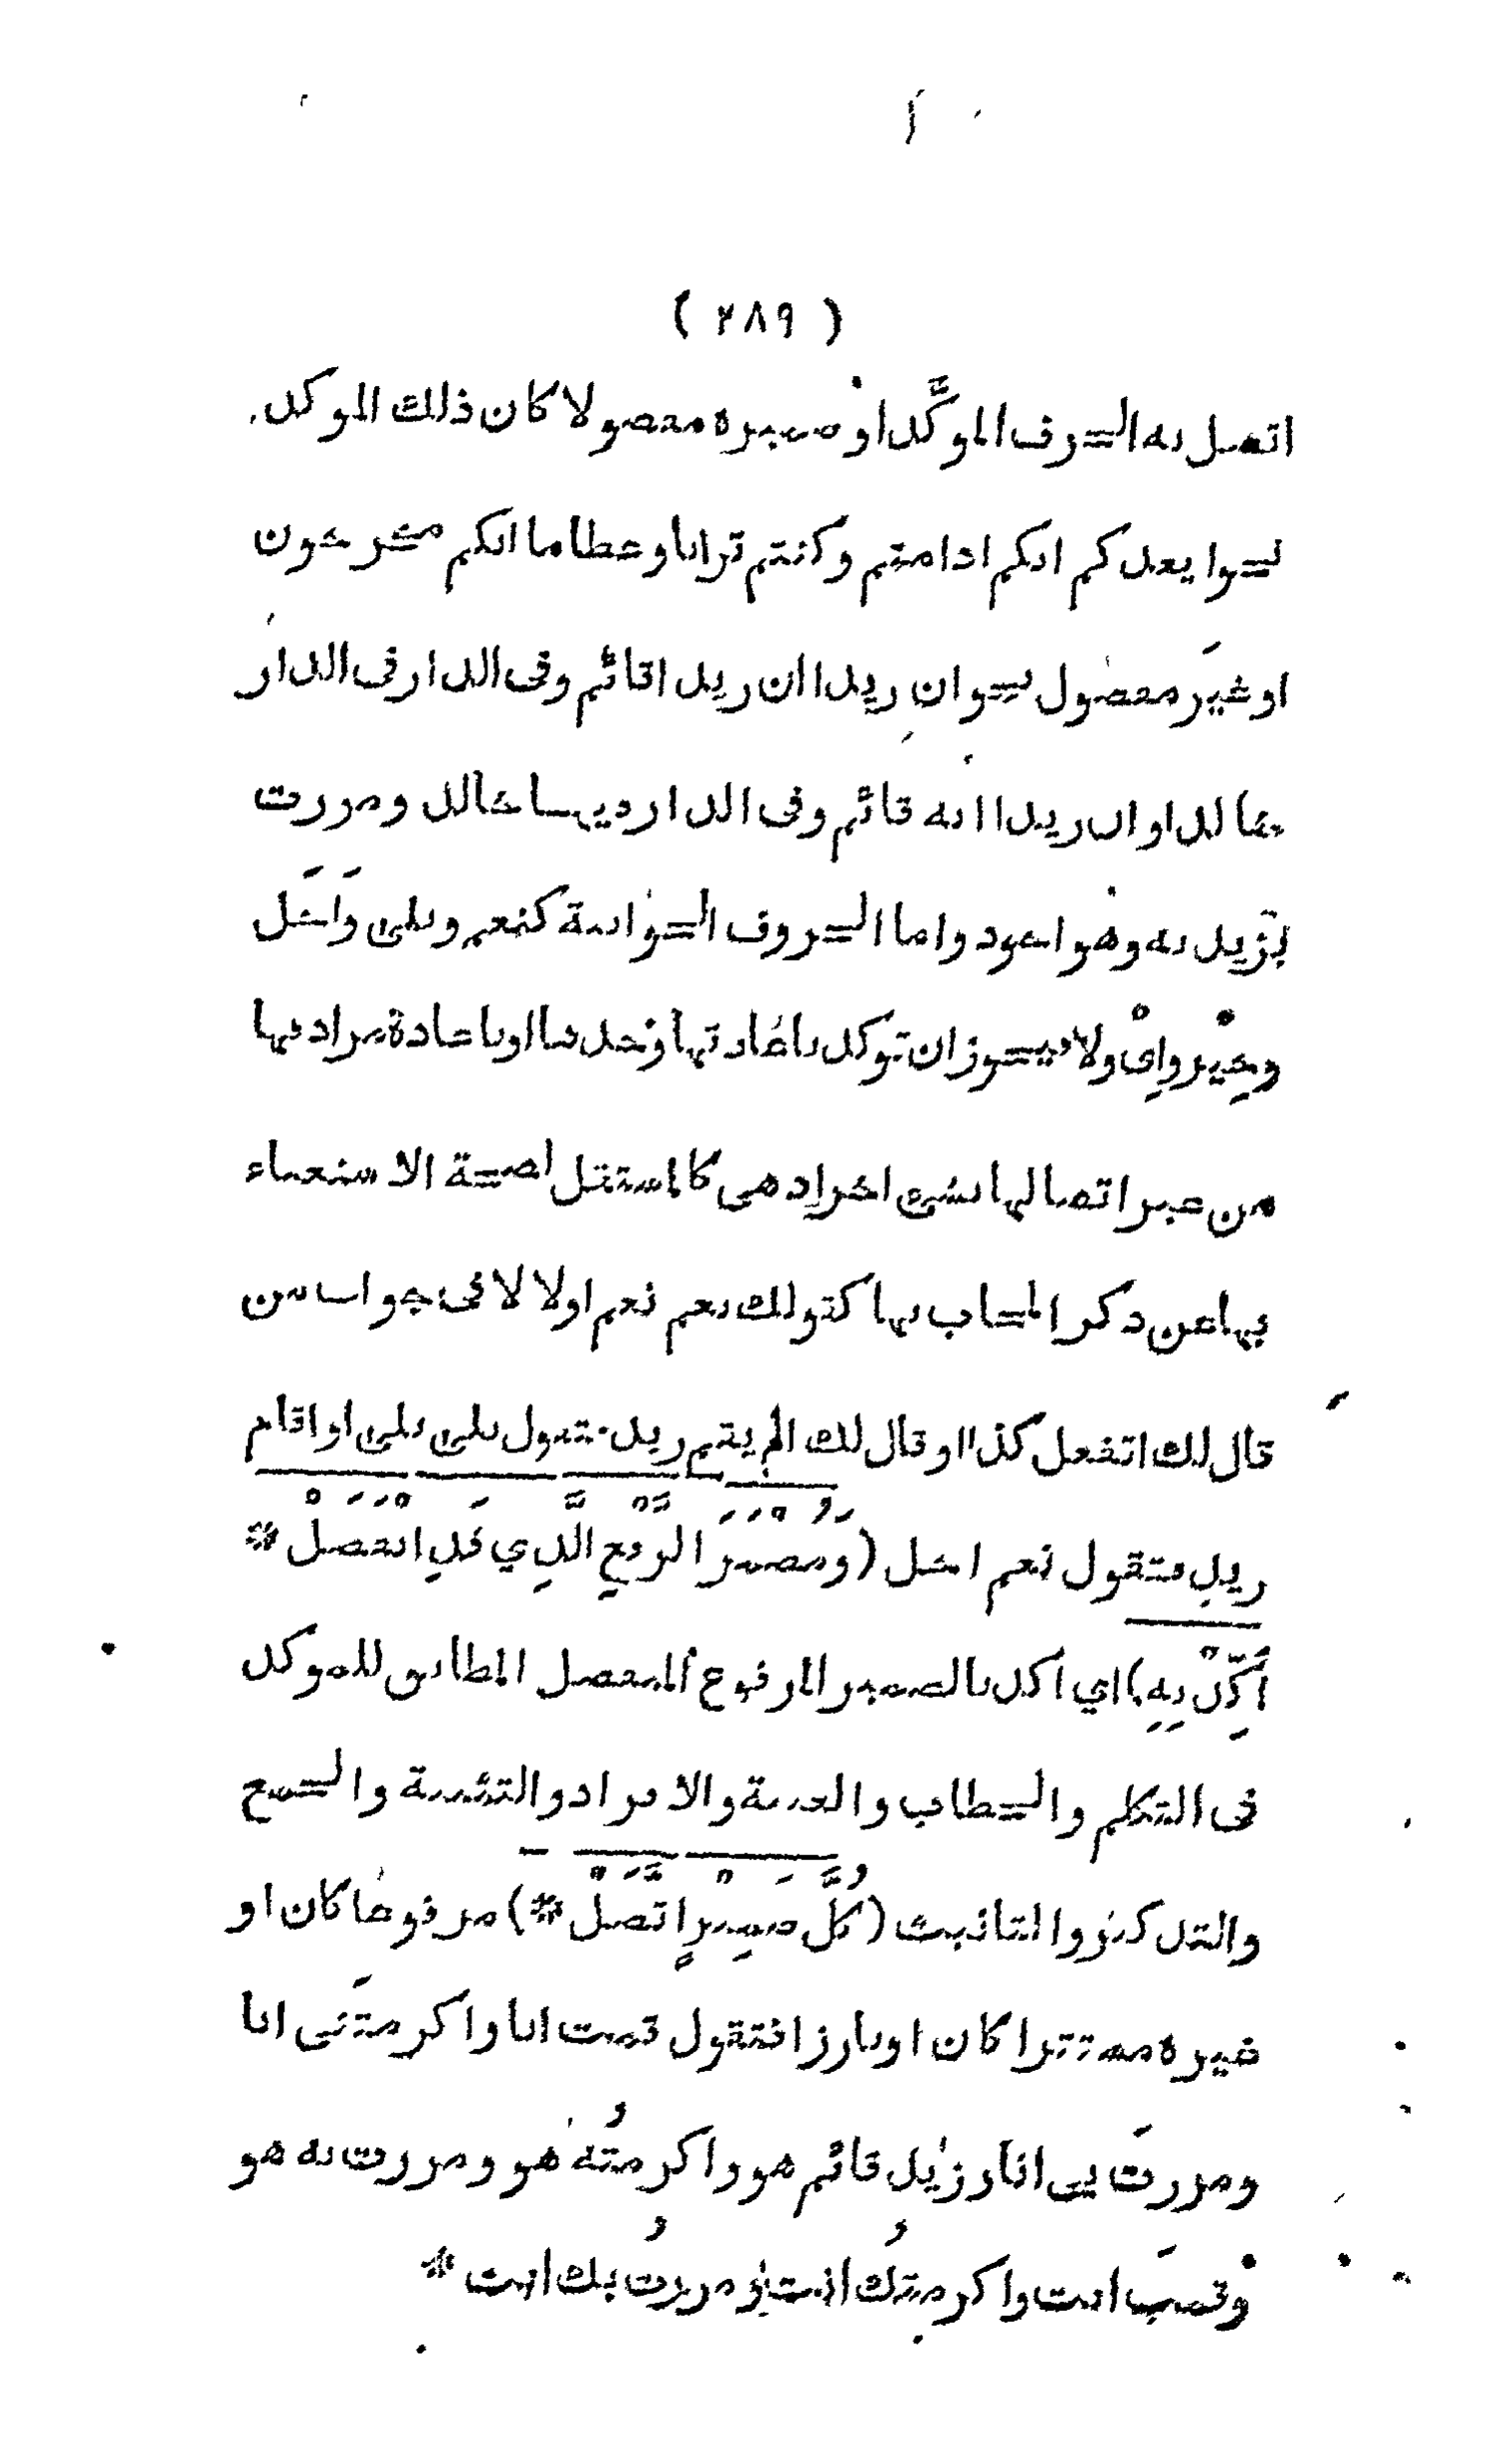 ( ٢٨٩ )
اتصل به الحرف الموكَّد او ضميره مفصولا كان ذلك الموكد
نحو ايعدكم انكم اذا متم وكنتم ترابا وعظاما انكم مخرجون
او غير مفصول نحو ان زيدا ان زيدا قائم وفى الدار فى الدار
خالد او ان زيدا انه قائم وفى الدار فيها خالد ومررت
بزيد به وهو اجود واما الحروف الجوابية كنعم وبلى واجل
وجير واى ولا فيجوز ان توكد باعادتها وحدها او باعادة مرادفها
من غير اتصالها بشئ اخر اذ هى كالمستقل لصحة الاستغناء
بها عن ذكر المجاب بها كقولك نعم نعم او لا لا فى جواب من
قال لك اتفعل كذا او قال لك الم يقم زيد فتقول بلى بلى او اقام
زيد فتقول نعم اجل (وَمُضْمَرَ الرَّفْعِ الَّذِي قَدِ انْفَصَلْ *
أَكِّدْ بِهِ) اي اكد بالضمير المرفوع المنفصل المطابق للموكد
فى التكلم والخطاب والغيبة والافراد والتثنية والجمع
والتذكير والتانيث (كُلَّ ضَمِيْرٍ اتَّصَلْ *) مرفوعا كان او
غيره مستترا كان او بارزا فتقول قمت انا واكرمتَنى انا
ومررتَ بى انا وزيد قائم هو واكرمتُه هو ومررت به هو
وقمتَ انت واكرمتُك انت ومررتُ بك انت *